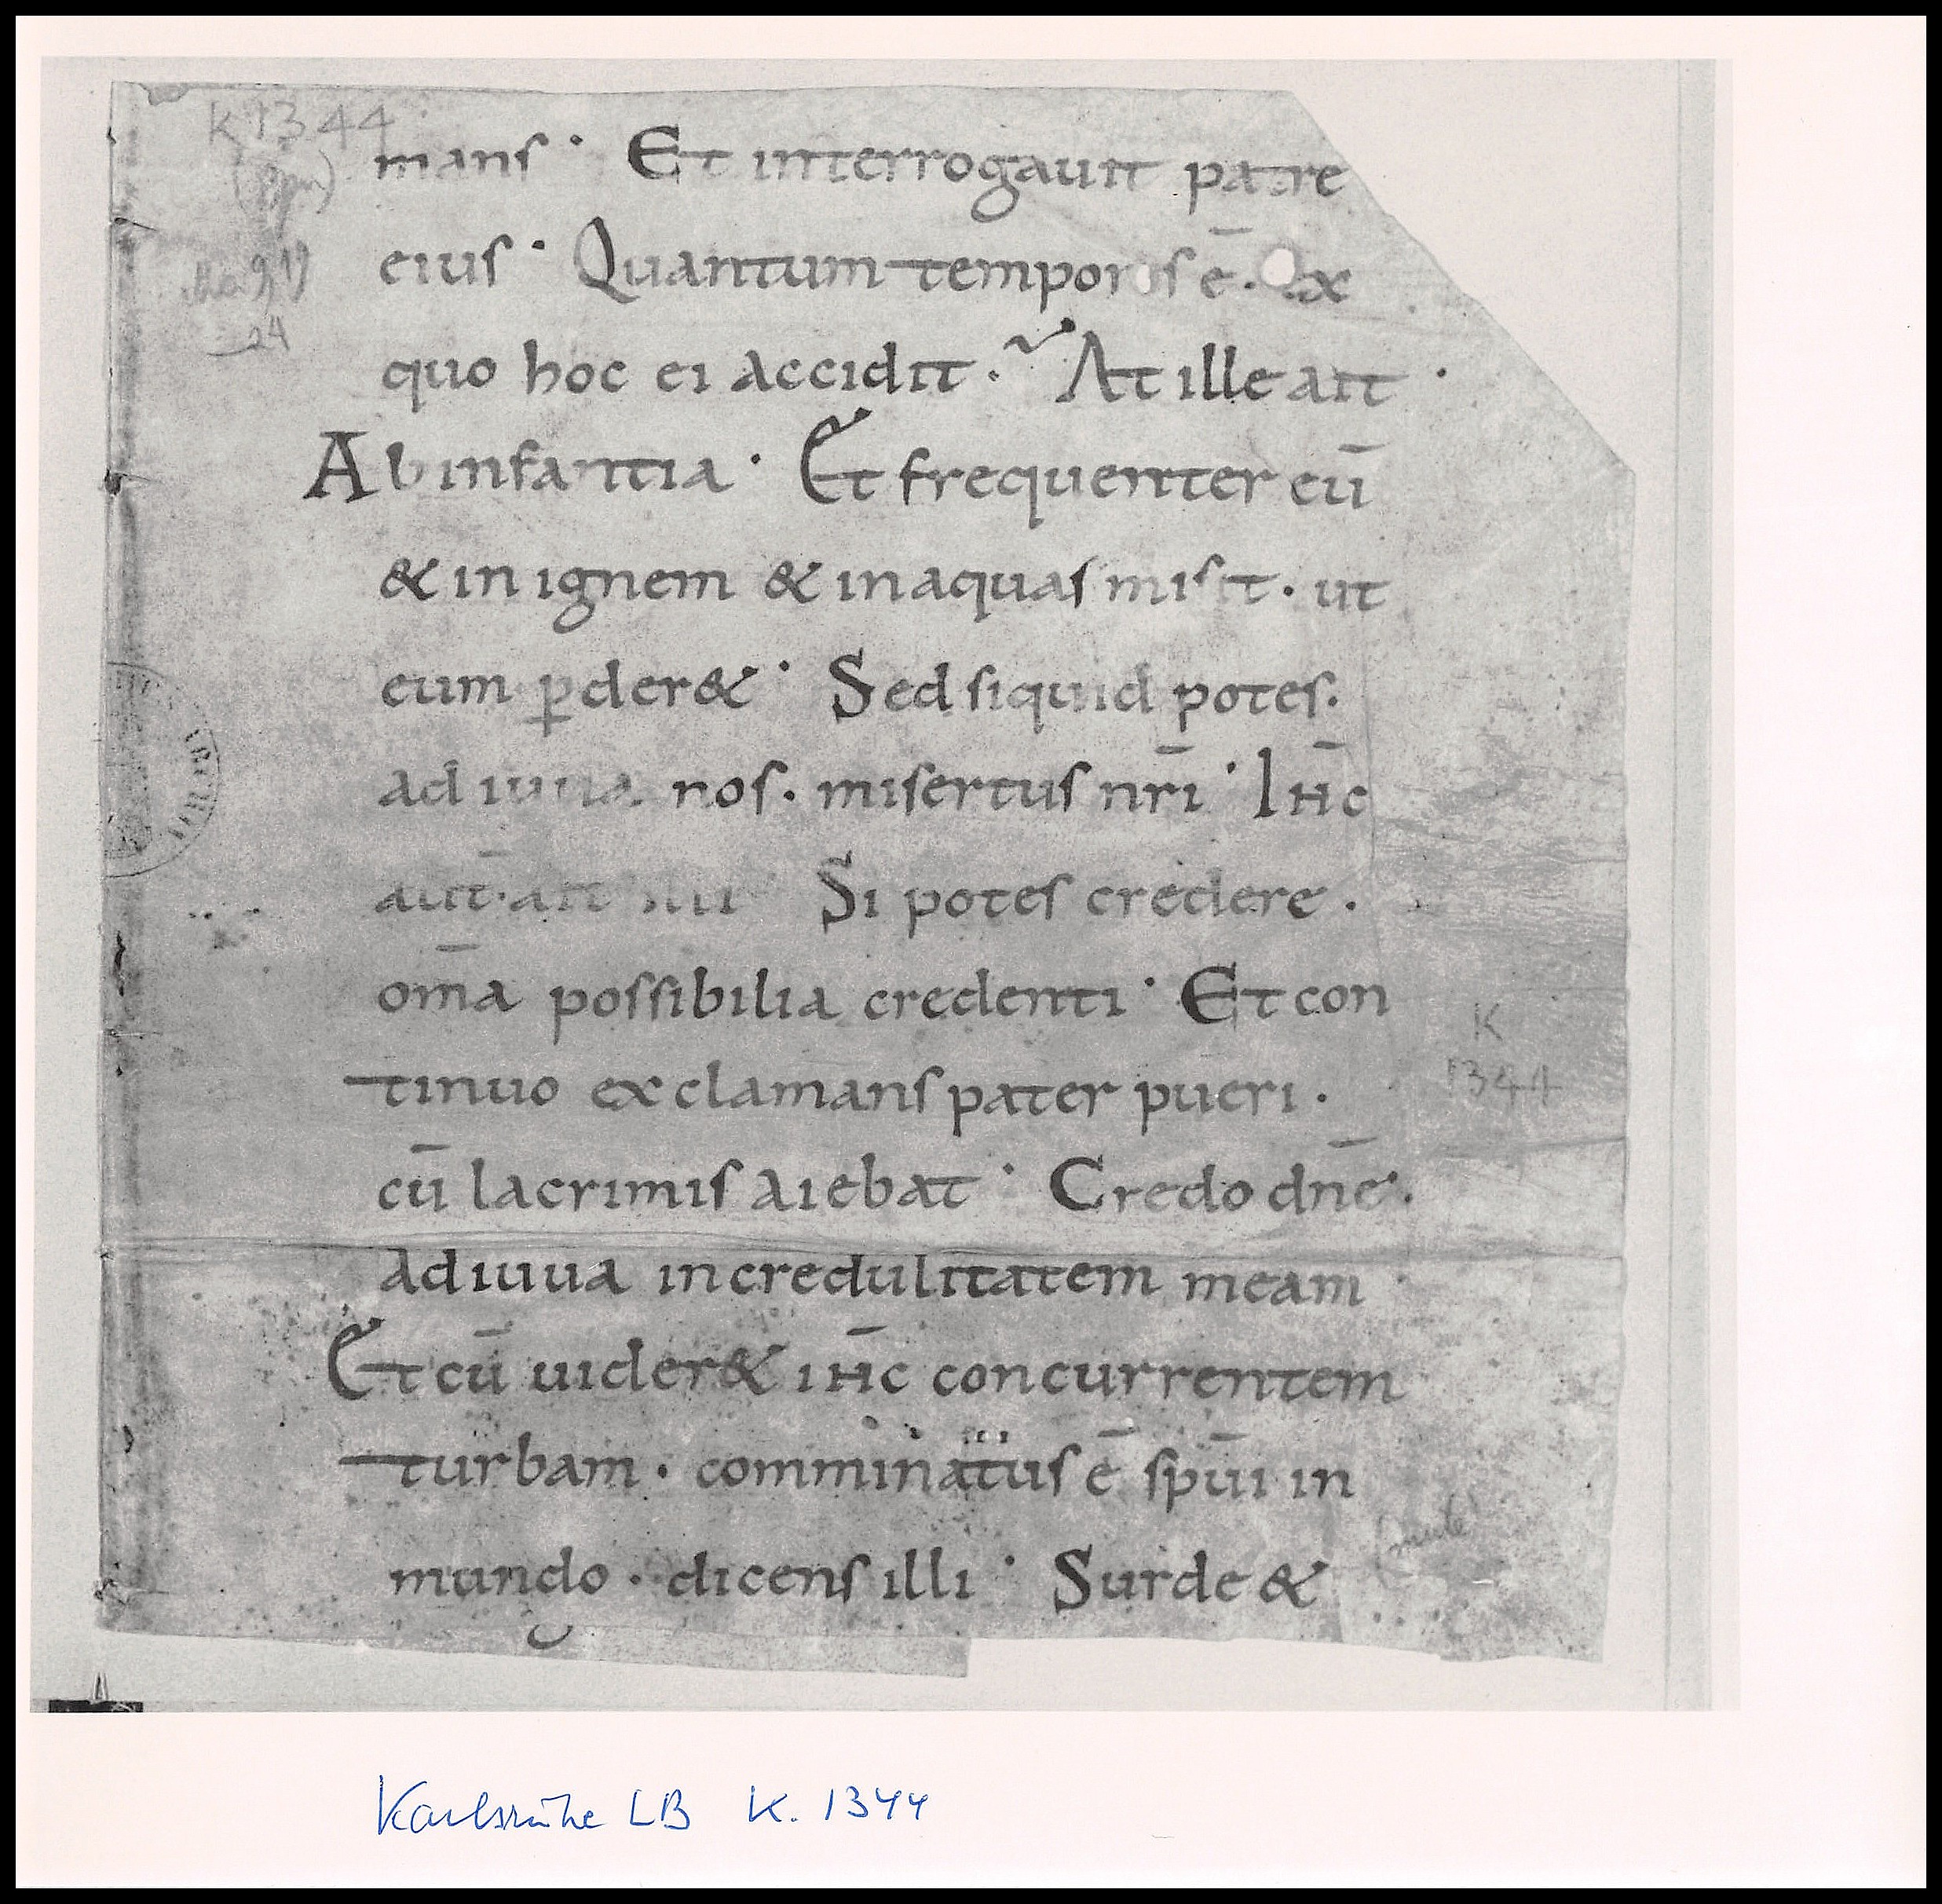 K 1344
manſ · Et interrogauit patre
eiuſ · Quantum temporiſ ē. Ex
24
quo hoc ei accidit. At ille ait ·
Ab infantia · Et frequenter eū
& in ignem & in aquaſ miſit. ut
eum ꝑder& · Sed ſi quid poteſ.
adiuua noſ. miſertuſ nr̄i · Ih̄c
aut̄. ait illi Si poteſ credere.
om̄a poſſibilia credenti · Et con
tinuo exclamanſ pater pueri.
K
1344
cū lacrimiſ aiebat · Credo dn̄e.
adiuua incredulitatem meam
Et cū uider& ih̄c concurrentem
turbam. comminatuſ ē ſpūi in
mundo. dicenſ illi · Surde &
(mute)
Karlsruhe LB K. 1344